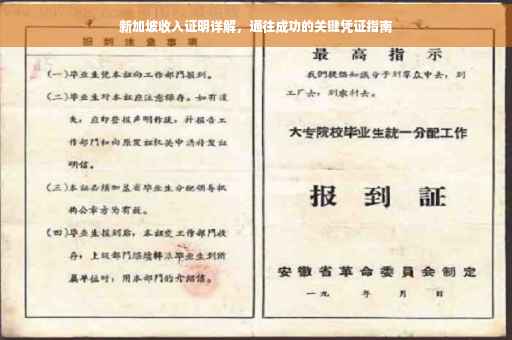 新加坡收入证明详解，通往成功的关键凭证指南
报到注意事项
(一)毕业生凭本证向工作部門报到。
(二)毕业生对本证应注意保存。如有遗
失，应即登报声明作废，并报告工
作部門和向原发证机关申請补发证
明信。
(三)本证必须加盖省毕业生分配领导机
构公章方为有效。
(四)毕业生报到后，本证交工作部門收
存，上级部門
毕业生到所
属单位时，用本部門的介绍信。
最高指示
我們提倡知識分子到羣众中去，到
工厂去，到农村去。
大专院校毕业生統一分配工作
报到証
安徽省革命委員会制定
一九 年 月 日